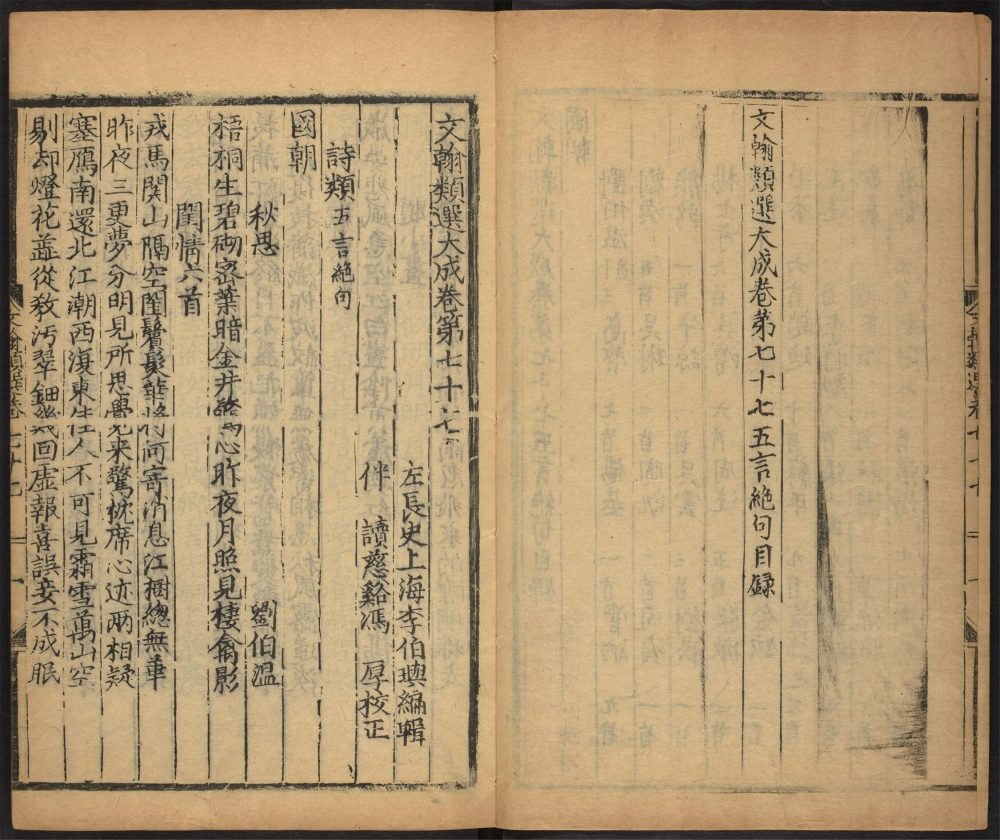 文翰類選大成卷第七十七五言絕句目録
文翰類選大成卷第七十七
左長史上海李伯璵編輯
伴讀慈谿馮厚校正
詩類五言絕句
國朝
秋思 劉伯温
梧桐生碧砌宻葉暗金井驚心昨夜月照見棲禽影
閨情六首
戎馬関山隔空閨鬢髮華將何寄消息江樹總無華
昨夜三更夢分明見所思覺来驚枕席心迹兩相疑
塞鴈南還北江潮西復東佳人不可見霜雪萬山空
剔却燈花蘂從教汚翠鈿幾回虛報喜誤妾不成眠